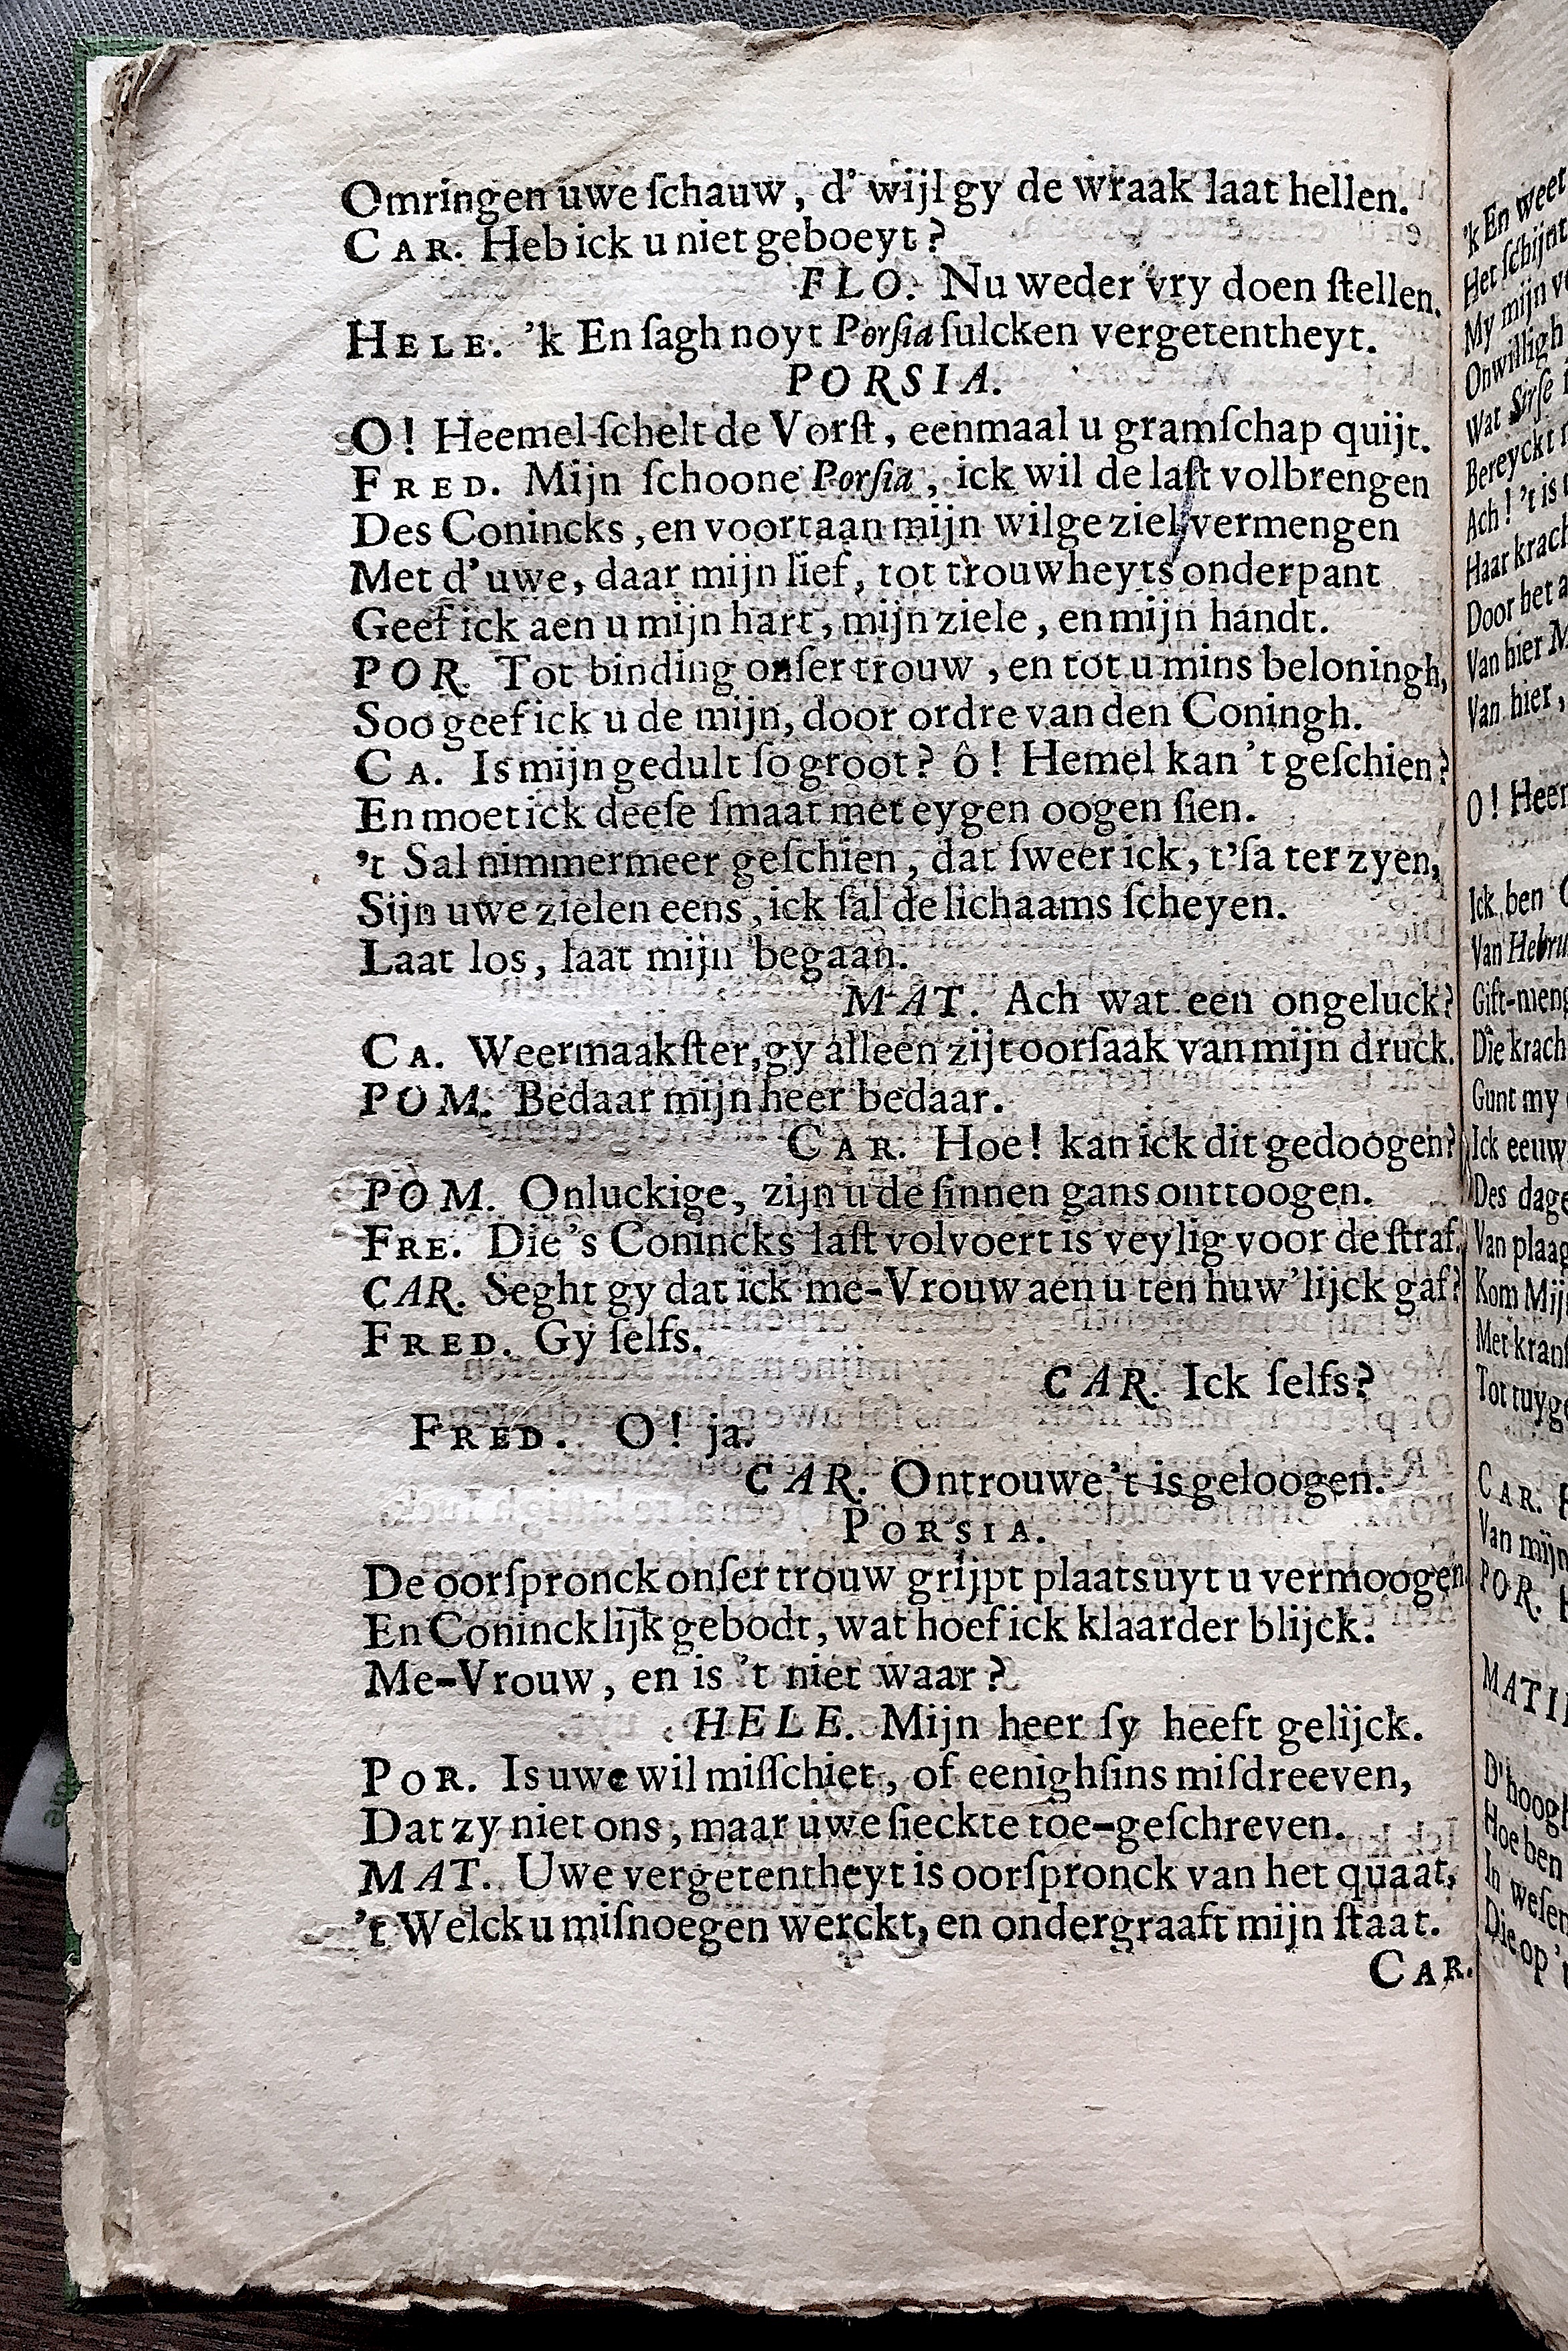 Omringen uwe ſchauw, d' wijl gy de wraak laat hellen.
CAR. Heb ick u niet geboeyt?
FLO. Nu weder vry doen ſtellen.
HELE. 'k En ſagh noyt Porſia ſulcken vergetentheyt.
PORSIA.
O! Heemel ſchelt de Vorſt, eenmaal u gramſchap quijt.
FRED. Mijn ſchoone Porſia, ick wil de laſt volbrengen
Des Conincks, en voortaan mijn wilge ziel vermengen
Met d'uwe, daar mijn lief, tot trouwheyts onderpant
Geef ick aen u mijn hart, mijn ziele, en mijn handt.
POR. Tot binding onſer trouw, en tot u mins beloningh,
Soo geef ick u de mijn, door ordre van den Coningh.
CA. Is mijn gedult ſo groot? ô! Hemel kan 't geſchien?
En moet ick deeſe ſmaat met eygen oogen ſien.
't Sal nimmermeer geſchien, dat ſweer ick, t'ſa ter zyen,
Sijn uwe zielen eens, ick ſal de lichaams ſcheyen.
Laat los, laat mijn begaan.
MAT. Ach wat een ongeluck?
CA. Weermaakſter, gy alleen zijt oorſaak van mijn druck.
POM. Bedaar mijn heer bedaar.
CAR. Hoe! kan ick dit gedoogen?
POM. Onluckige, zijn u de ſinnen gans onttoogen.
FRE. Die 's Conincks laſt volvoert is veylig voor de ſtraf.
CAR. Seght gy dat ick me-Vrouw aen u ten huw'lijck gaf?
FRED. Gy ſelfs.
CAR. Ick ſelfs?
FRED. O! ja.
CAR. Ontrouwe 't is geloogen.
PORSIA.
De oorſpronck onſer trouw grijpt plaats uyt u vermoogen
En Conincklijk gebodt, wat hoef ick klaarder blijck.
Me-Vrouw, en is 't niet waar?
HELE. Mijn heer ſy heeft gelijck.
POR. Is uwe wil miſſchiet, of eenighſins miſdreeven,
Dat zy niet ons, maar uwe ſieckte toe-geſchreven.
MAT. Uwe vergetentheyt is oorſpronck van het quaat,
't Welck u miſnoegen werckt, en ondergraaft mijn ſtaat.
CAR.
'k En weet
Het ſchijnt
My mijn
Onwilligh
Wat Sirſe
Bereyckt
Ach! 't is
Haar krach
Door het
Van hier
Van hier,
O! Heer
Ick ben
Van Hebru
Gift-meng
Die krach
Gunt my
Ick eeuw
Des dage
Van plaag
Kom Mij
Met kranſ
Tot tuyg
CAR.
Van mijn
POR.
MATI
D'hoog
Hoe ben
In weſen
Die op